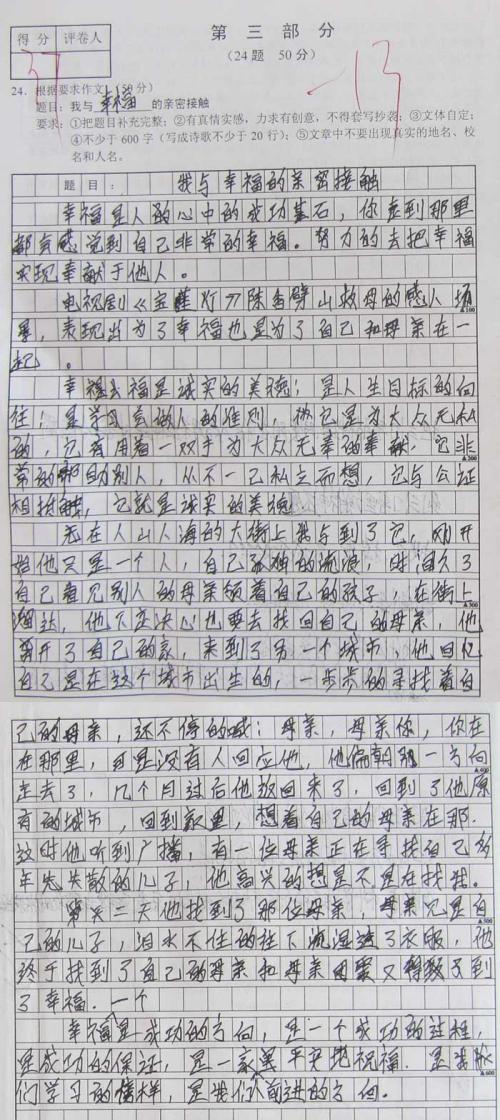 第 三 部 分
(24题 50分)
得 分 评卷人
37
-13
24. 根据要求作文。(50分)
题目：我与 幸福 的亲密接触
要求：①把题目补充完整；②有真情实感，力求有创意，不得套写抄袭；③文体自定；
④不少于 600 字 (写成诗歌不少于 20 行)；⑤文章中不要出现真实的地名、校
名和人名。
题 目 ： 我与幸福的亲密接触
幸福是人的心中的成功基石，你走到那里
都会感觉到自己非常的幸福。努力的去把幸福
实现奉献于他人。
电视剧《宝莲灯》陈香劈山救母的感人场
景，表现出为了幸福也是为了自己和母亲在一
起。
幸福是诚实的美德；是人生目标的向
往；是学习会做人的准则，它是为大众无私
的，它有用着一双手为大众无奉的奉献，它非
常的帮助别人，从不一己私立而想，它与公证
相接触，它就是诚实的美德
在人山人海的大街上我与到了它，刚开
始他只是一个人，自己孤独的流浪，时间久了
自己看见别人的母亲领着自己的孩子，在街上
溜达，他下定决心也要去找回自己的母亲，他
离开了自己的家，来到了另一个城市，他回忆
自己是在这个城市出生的，一步步的寻找着自
己的母亲，还不停的喊：母亲，母亲你，你在
在那里，可是没有人回应他，他偏朝那一方向
走去了，几个月过后他放回来了，回到了他原
有的城市，回到家里，想着自己的母亲在那.
这时他听到广播，有一位母亲正在寻找自己多
年先失散的儿子，他高兴的想是不是在找我.
第二天他找到了那位母亲，母亲见是自
己的儿子，泪水不住的往下流湿透了衣服，他
终于找到了自己的母亲和母亲又得到
了幸福.一个
幸福是成功的方向，是一个成功的过程，
是成功的保证，是一家平实地祝福.是我
们学习的榜样，是我们前进的方向.